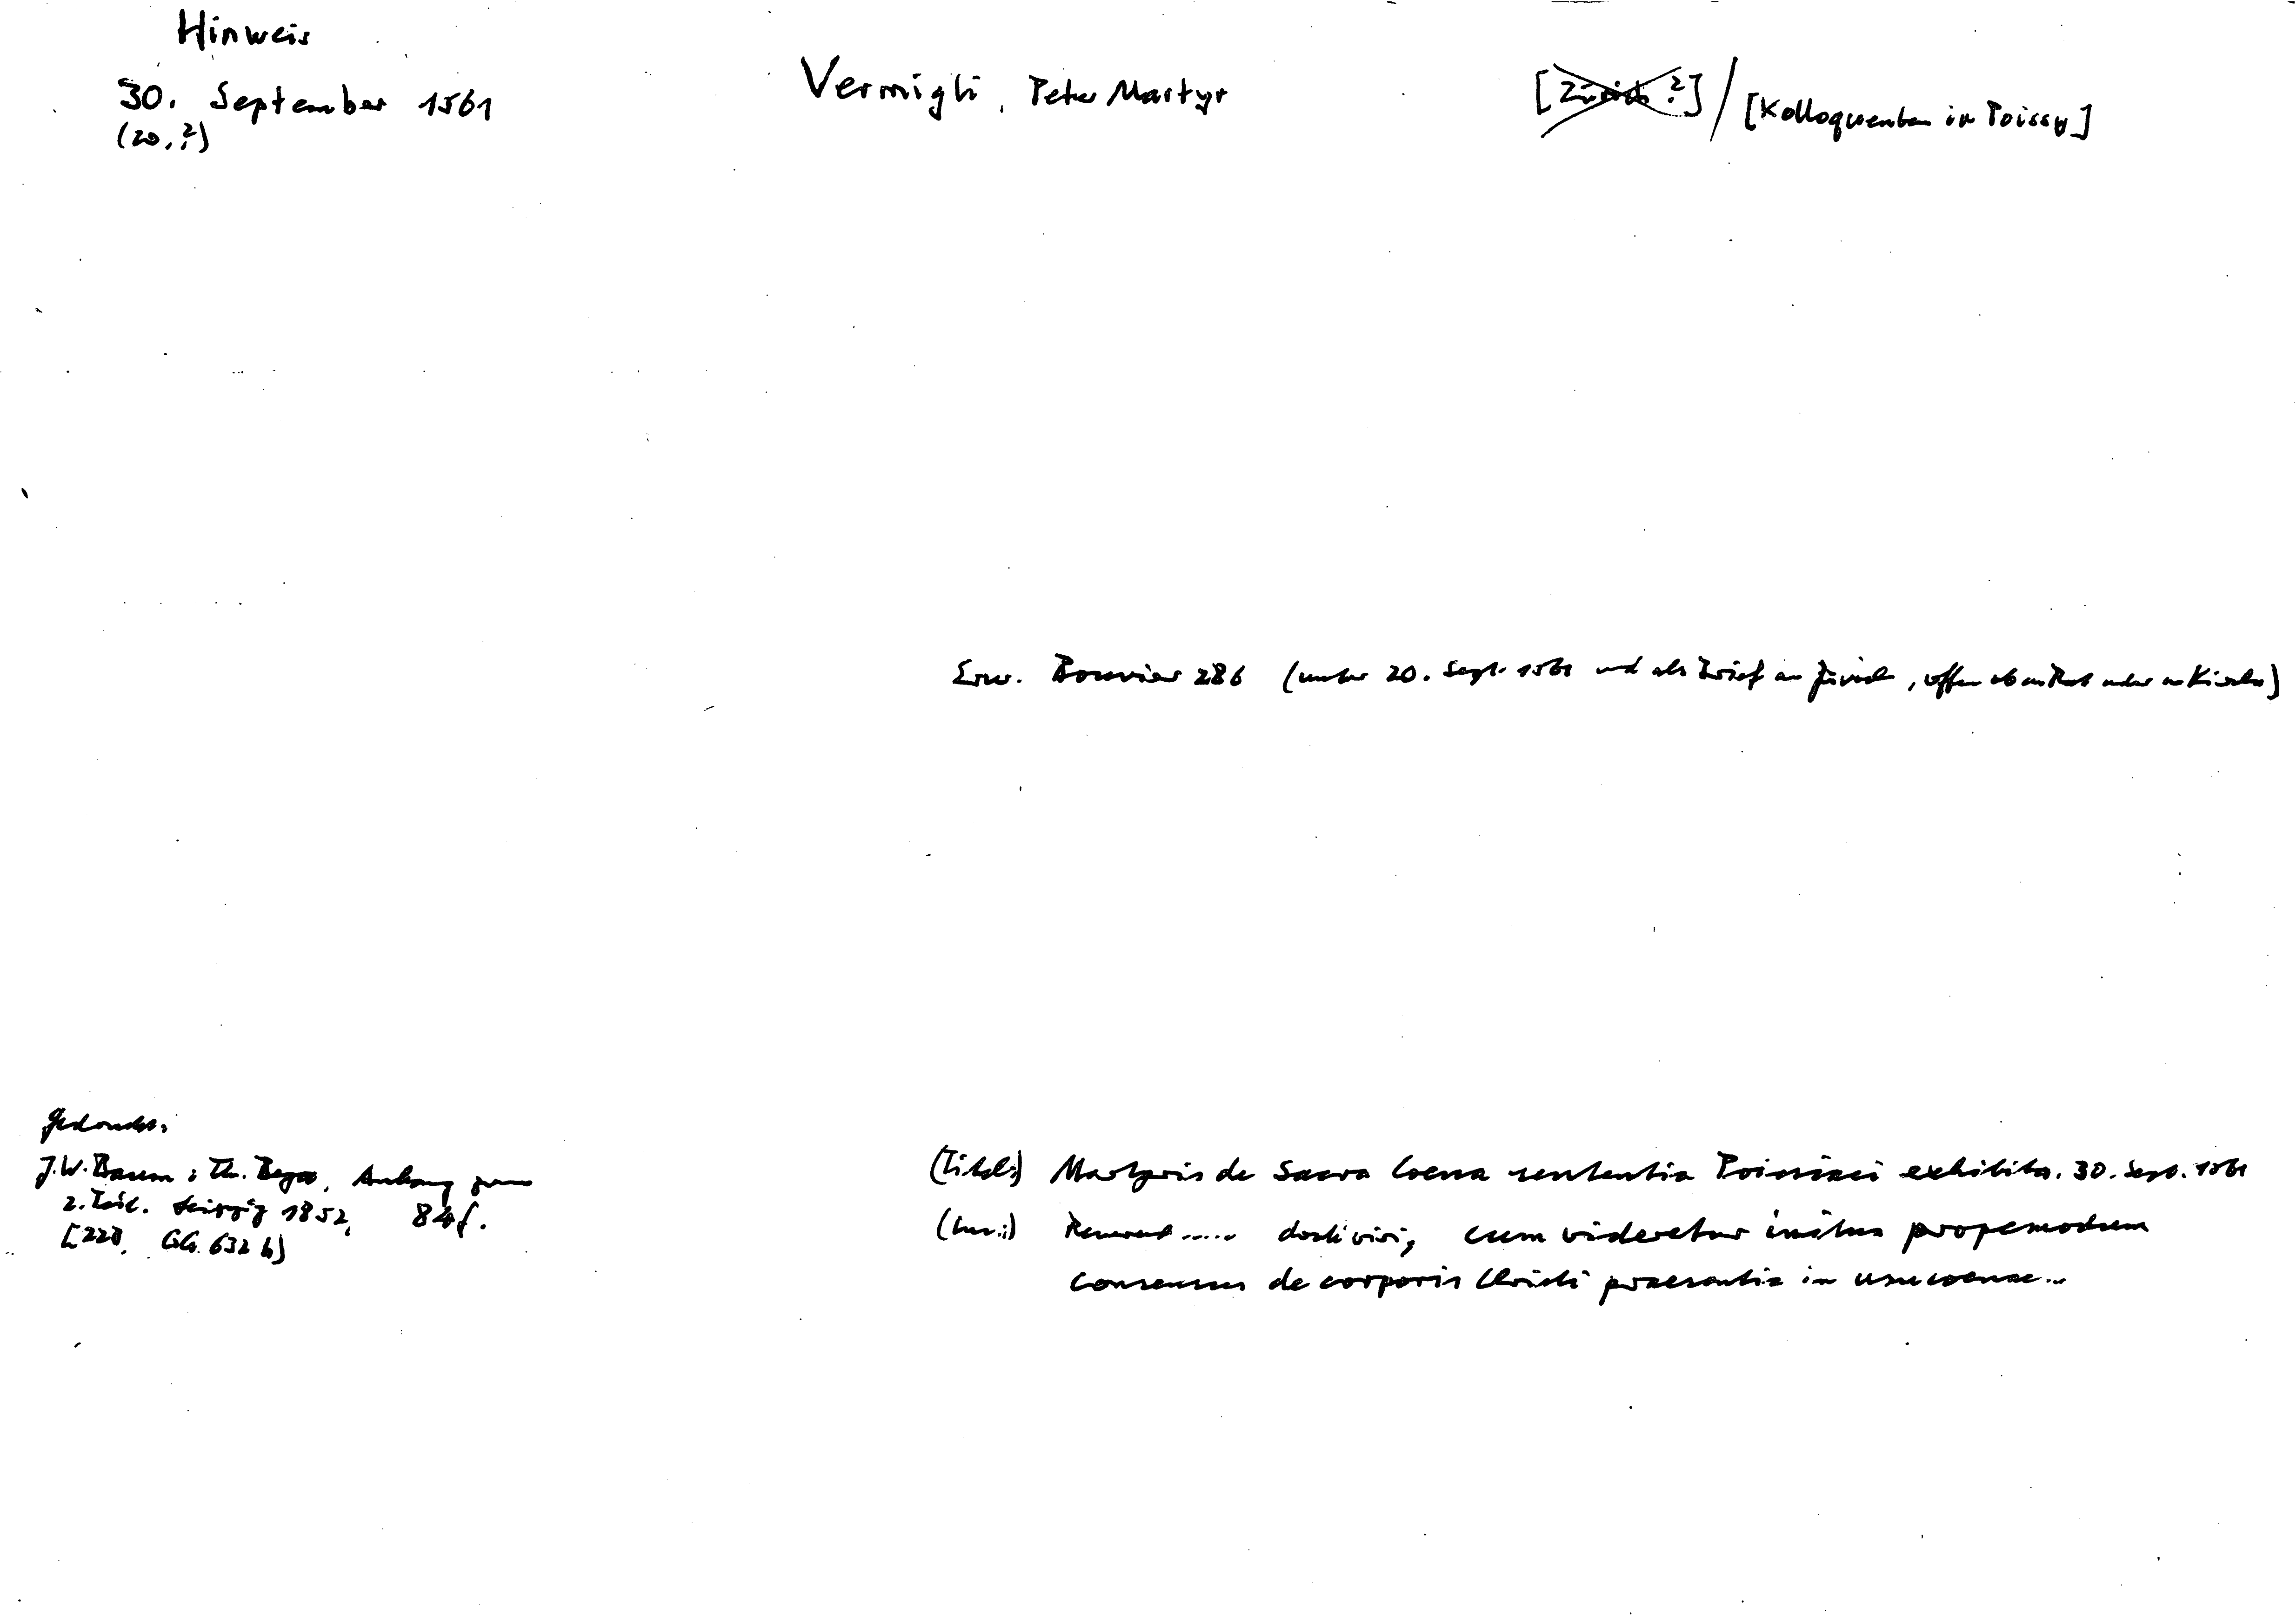 Hinweis
30. September 1561
(20.?)
Vermigli, Peter Martyr
[Zürich ?] / [Kolloquenten in Poissy]
Erw. Bouvier 286 (unter 20. Sept. 1561 und als Brief an Zürich, offen ob an Rat oder an Kirche)
Gedruckt:
J.W. Baum: Th. Beza, Anhang zum
2. Teil. Leipzig 1852, 84f.
[ZZB, GG 632 b]
(Titel:) Martyris de Sacra Coena sententia Poissiaci exhibita. 30. Sept. 1561
(Inc.:) Reverend..... docti viri, cum videretur initus propemodum
consensus de corporis Christi praesentia in usu coenae...